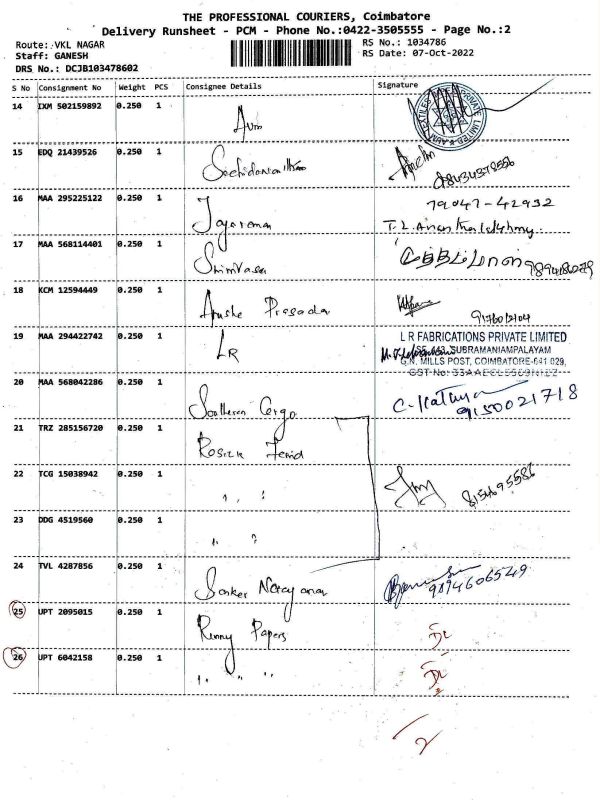 THE PROFESSIONAL COURIERS, Coimbatore
Delivery Runsheet - PCM - Phone No.:0422-3505555 - Page No.:2
Route: VKL NAGAR
Staff: GANESH
DRS No.: DCJB103478602
RS No.: 1034786
RS Date: 07-Oct-2022
S No Consignment No Weight PCS Consignee Details Signature
14 IXM 502159892 0.250 1
15 EDQ 21439526 0.250 1
16 MAA 295225122 0.250 1 Jayaraman 79047-42932
17 MAA 568114401 0.250 1 Srinivasa
18 KCM 12594449 0.250 1
19 MAA 294422742 0.250 1 LR L R FABRICATIONS PRIVATE LIMITED
SUBRAMANIAMPALAYAM
G.N. MILLS POST, COIMBATORE-641 029,
20 MAA 568042286 0.250 1 Southern Cargo 9150021718
21 TRZ 285156720 0.250 1
22 TCG 15038942 0.250 1 " " 8154695586
23 DDG 4519560 0.250 1 " "
24 TVL 4287856 0.250 1 Sanker Narayanan 9894606549
25 UPT 2095015 0.250 1 Papers
26 UPT 6042158 0.250 1 " " "
2